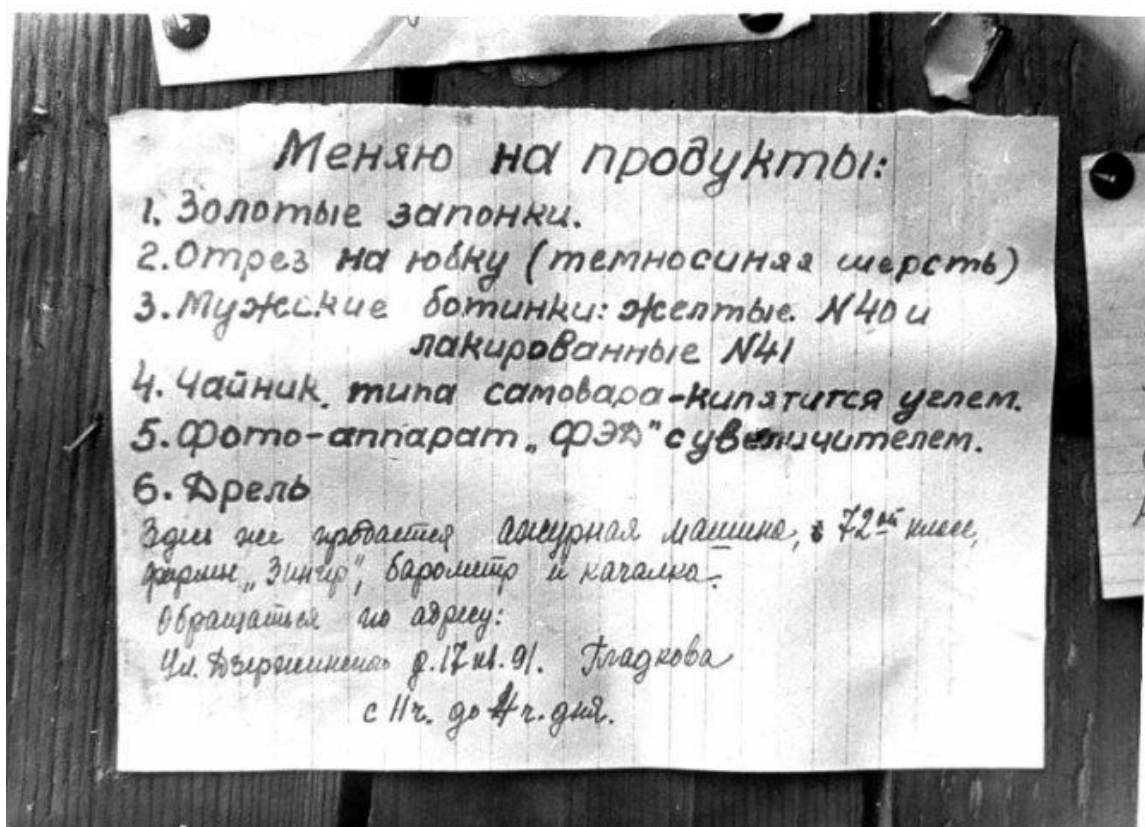 Меняю на продукты:
1. Золотые запонки.
2. Отрез на юбку (темносиняя шерсть)
3. Мужские ботинки: желтые N40 и
лакированные N41
4. Чайник типа самовара-кипятится углем.
5. Фото-аппарат „ФЭД" с увеличителем.
6. Дрель
Здесь же продается ажурная машина, 72ой класс,
фирмы „Зингер", барометр и качалка.
Обращаться по адресу:
Ул. Дзержинского д. 17 кв. 91. Гладкова
с 11ч. до 4ч. дня.